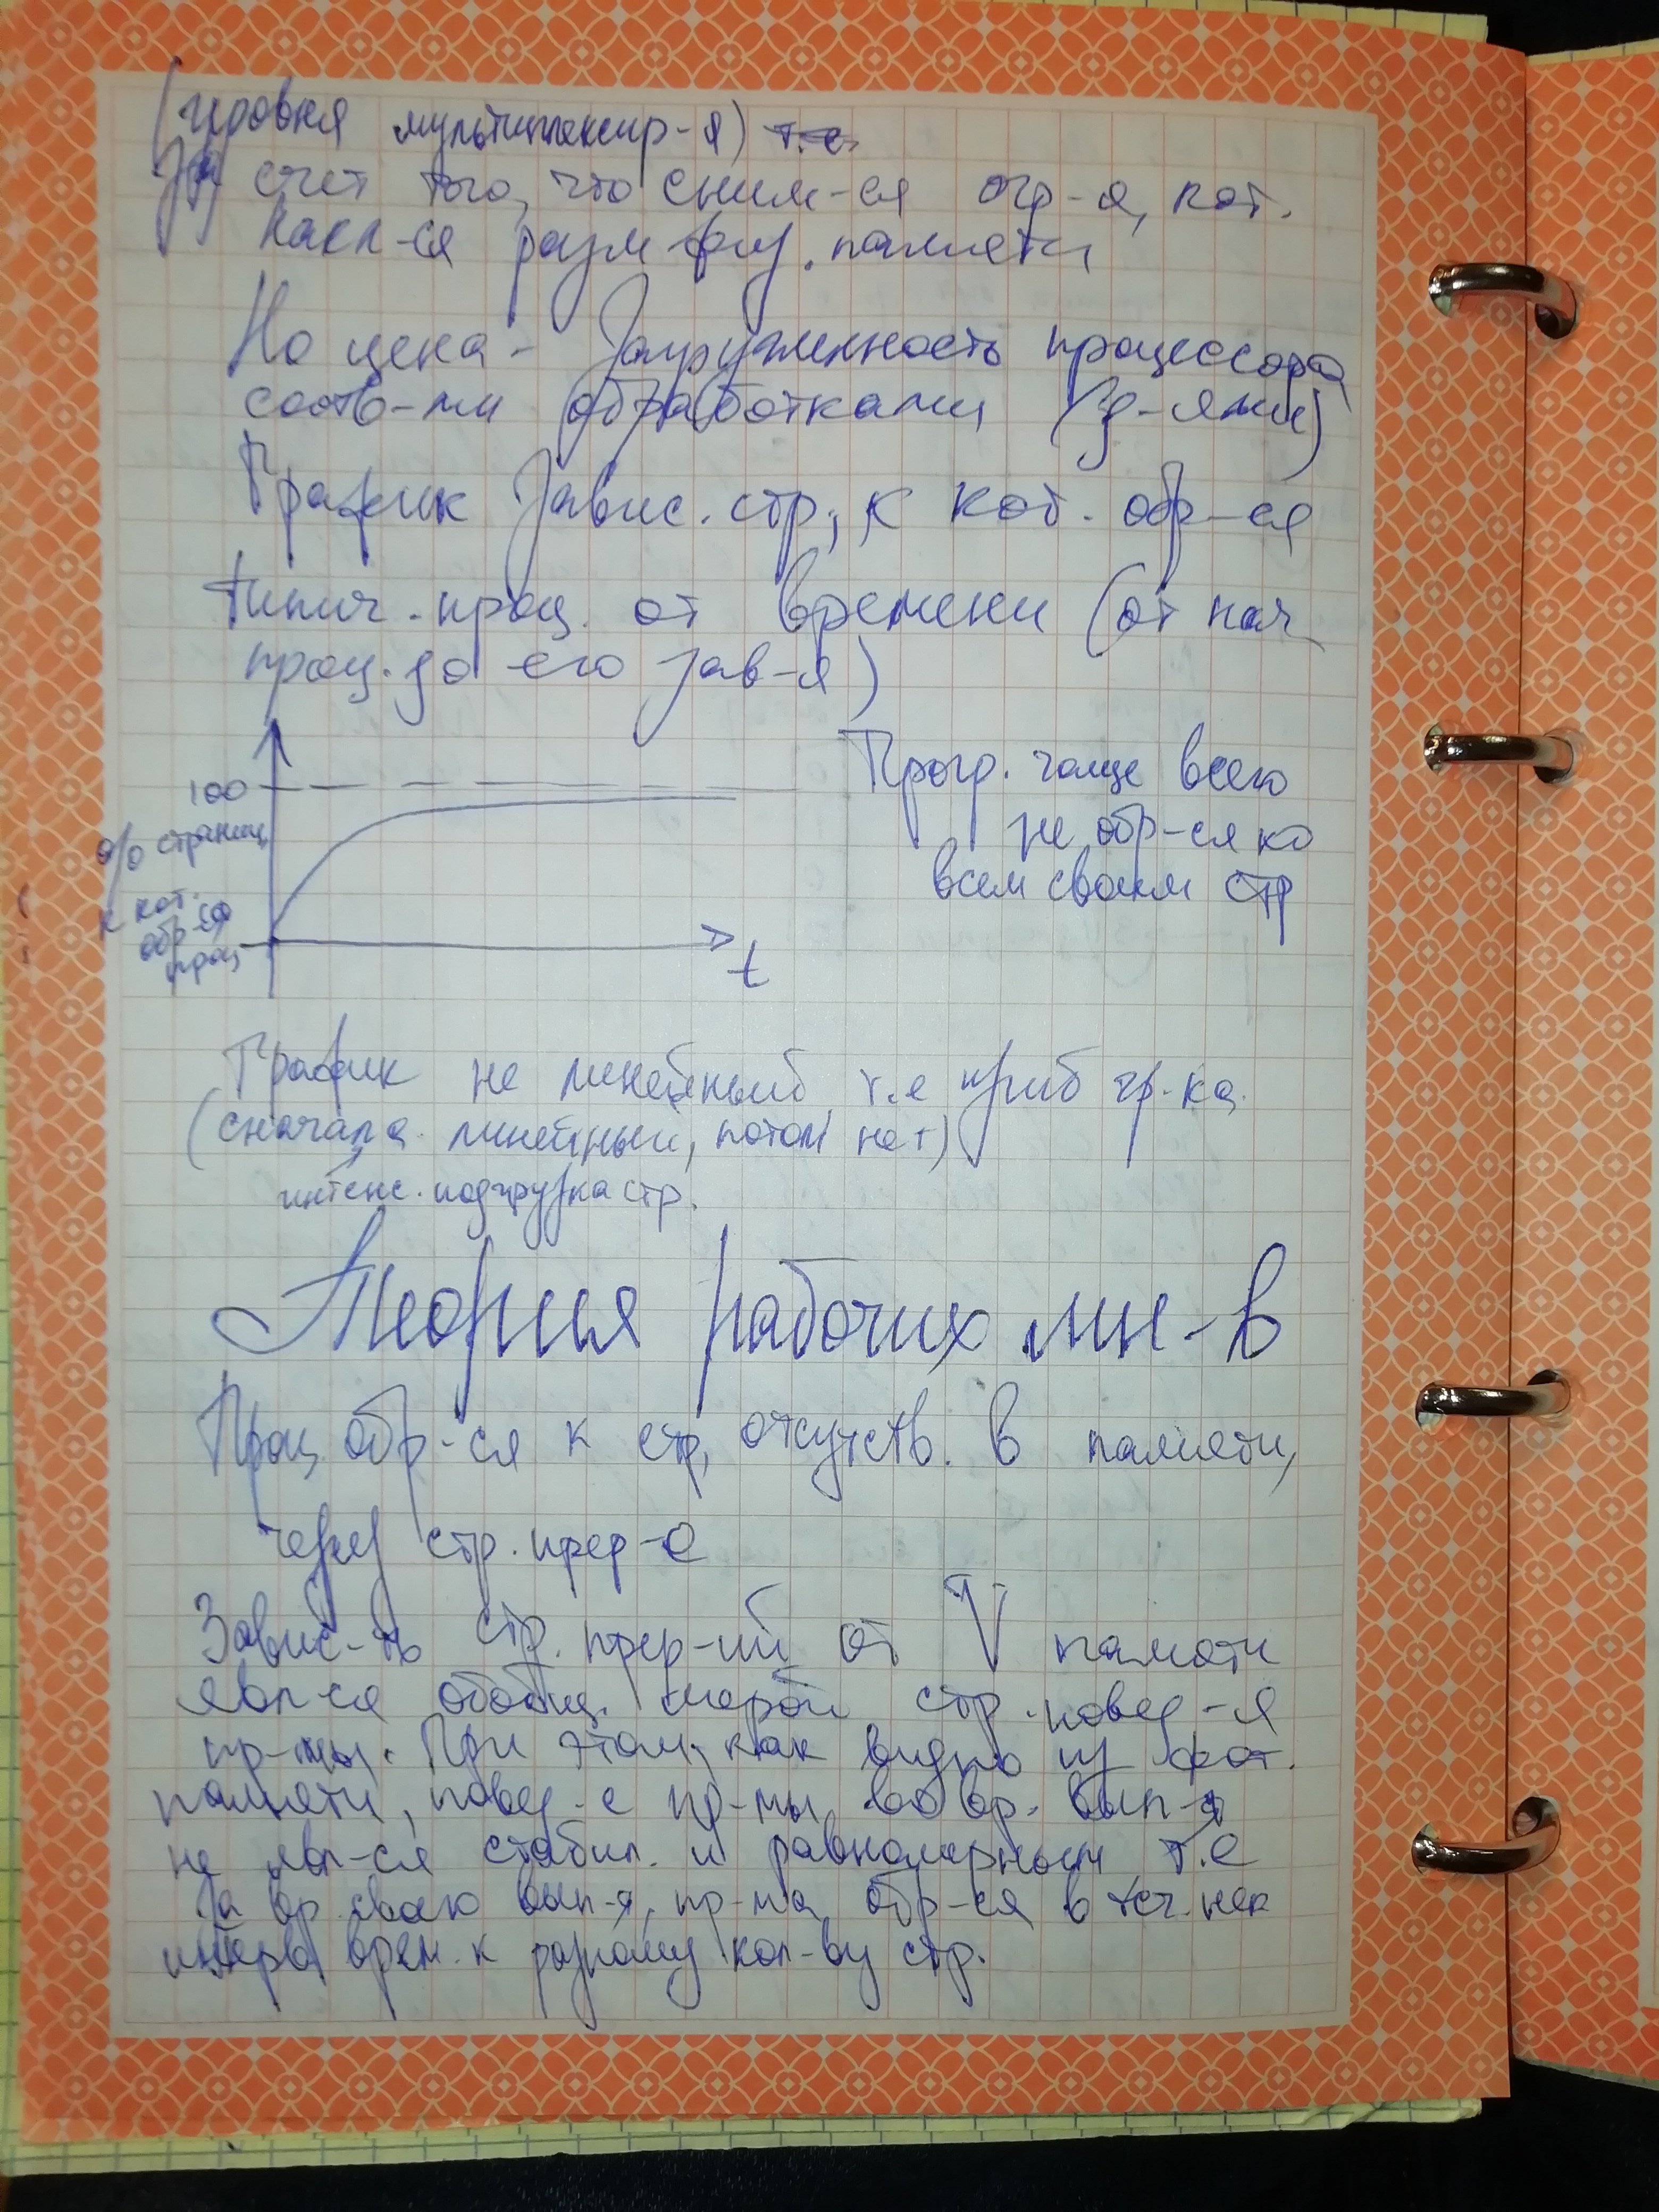 (уровня мультиплексир-я) т.е.
за счет того, что сним-ся огр-я, кот.
накл-ся разм физ. памяти
Но цена - Загруженность процессора
соотв-ми обработками (з-ями)
График завис. стр., к кот. обр-ся
типич. проц. от времени (от нач
проц. до его зав-я)
100
% страниц
к кот.
обр-ся
проц
t
Прогр. чаще всего
не обр-ся ко
всем своим стр
График не линейный, т.е приб гр-ка
(сначала линейный, потом нет)
интенс. подгрузка стр.
Теория рабочих мн-в
Проц обр-ся к стр, отсутств. в памяти,
через стр. прер-е
Завис-ть стр. прер-ий от V памяти
явл-ся обобщ. мерой стр. повед-я
пр-мы. При этом, как видно из фот.
памяти, повед-е пр-мы во вр. вып-я
не явл-ся стабил. и равномерным т.е
за вр. своего вып-я, пр-ма обр-ся в теч. нек
интерв врем. к разному кол-ву стр.